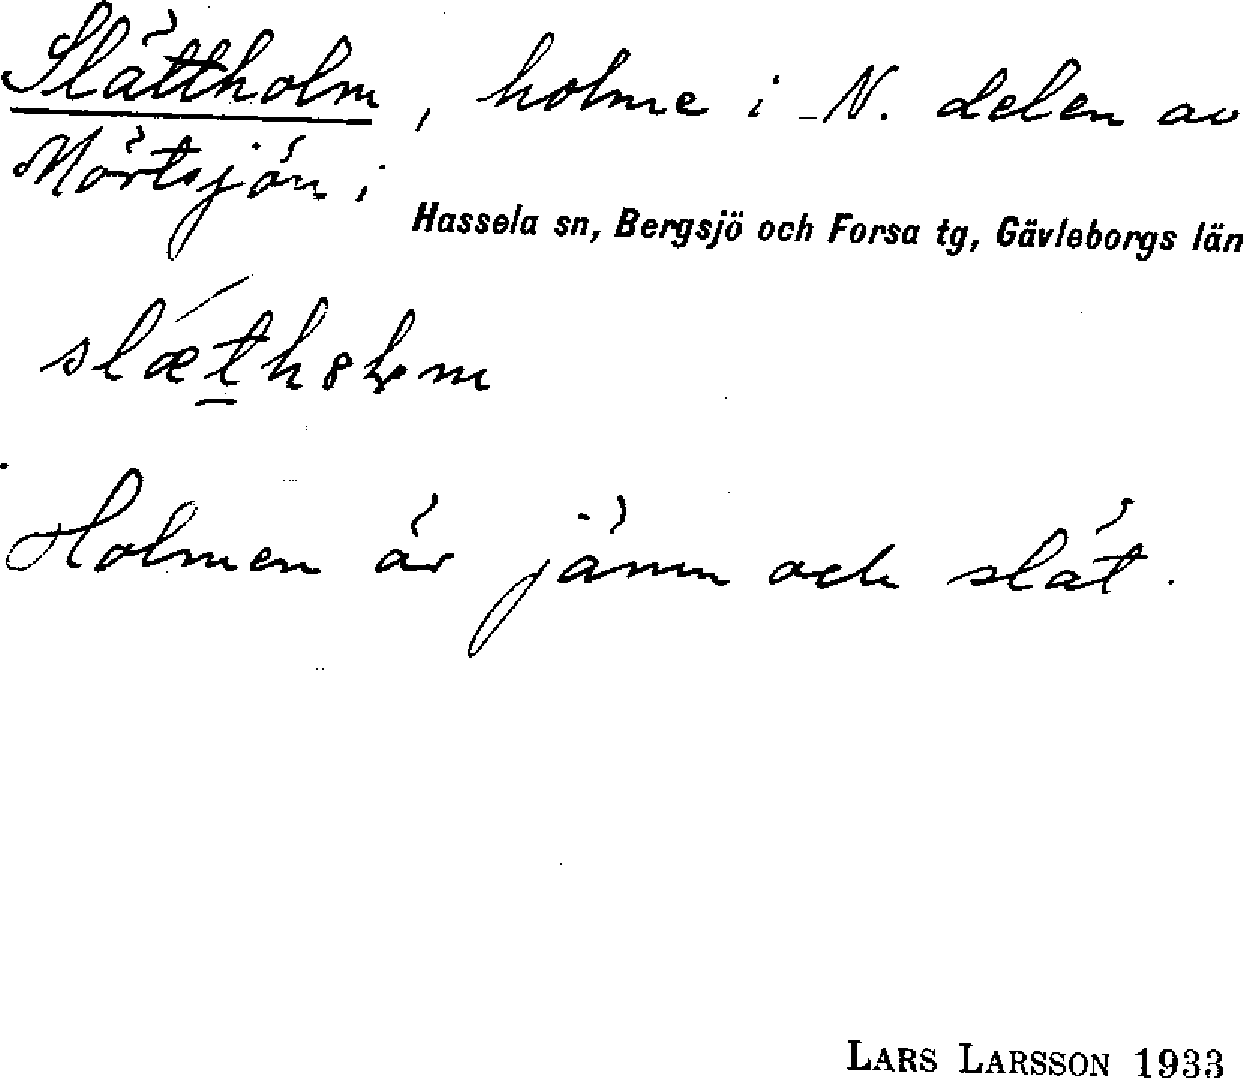 Slättholm, holme i N. delen av
Mörtsjön i
Hassela sn, Bergsjö och Forsa tg, Gävleborgs län
Holmen är jämn och slät.
LARS LARSSON 1933